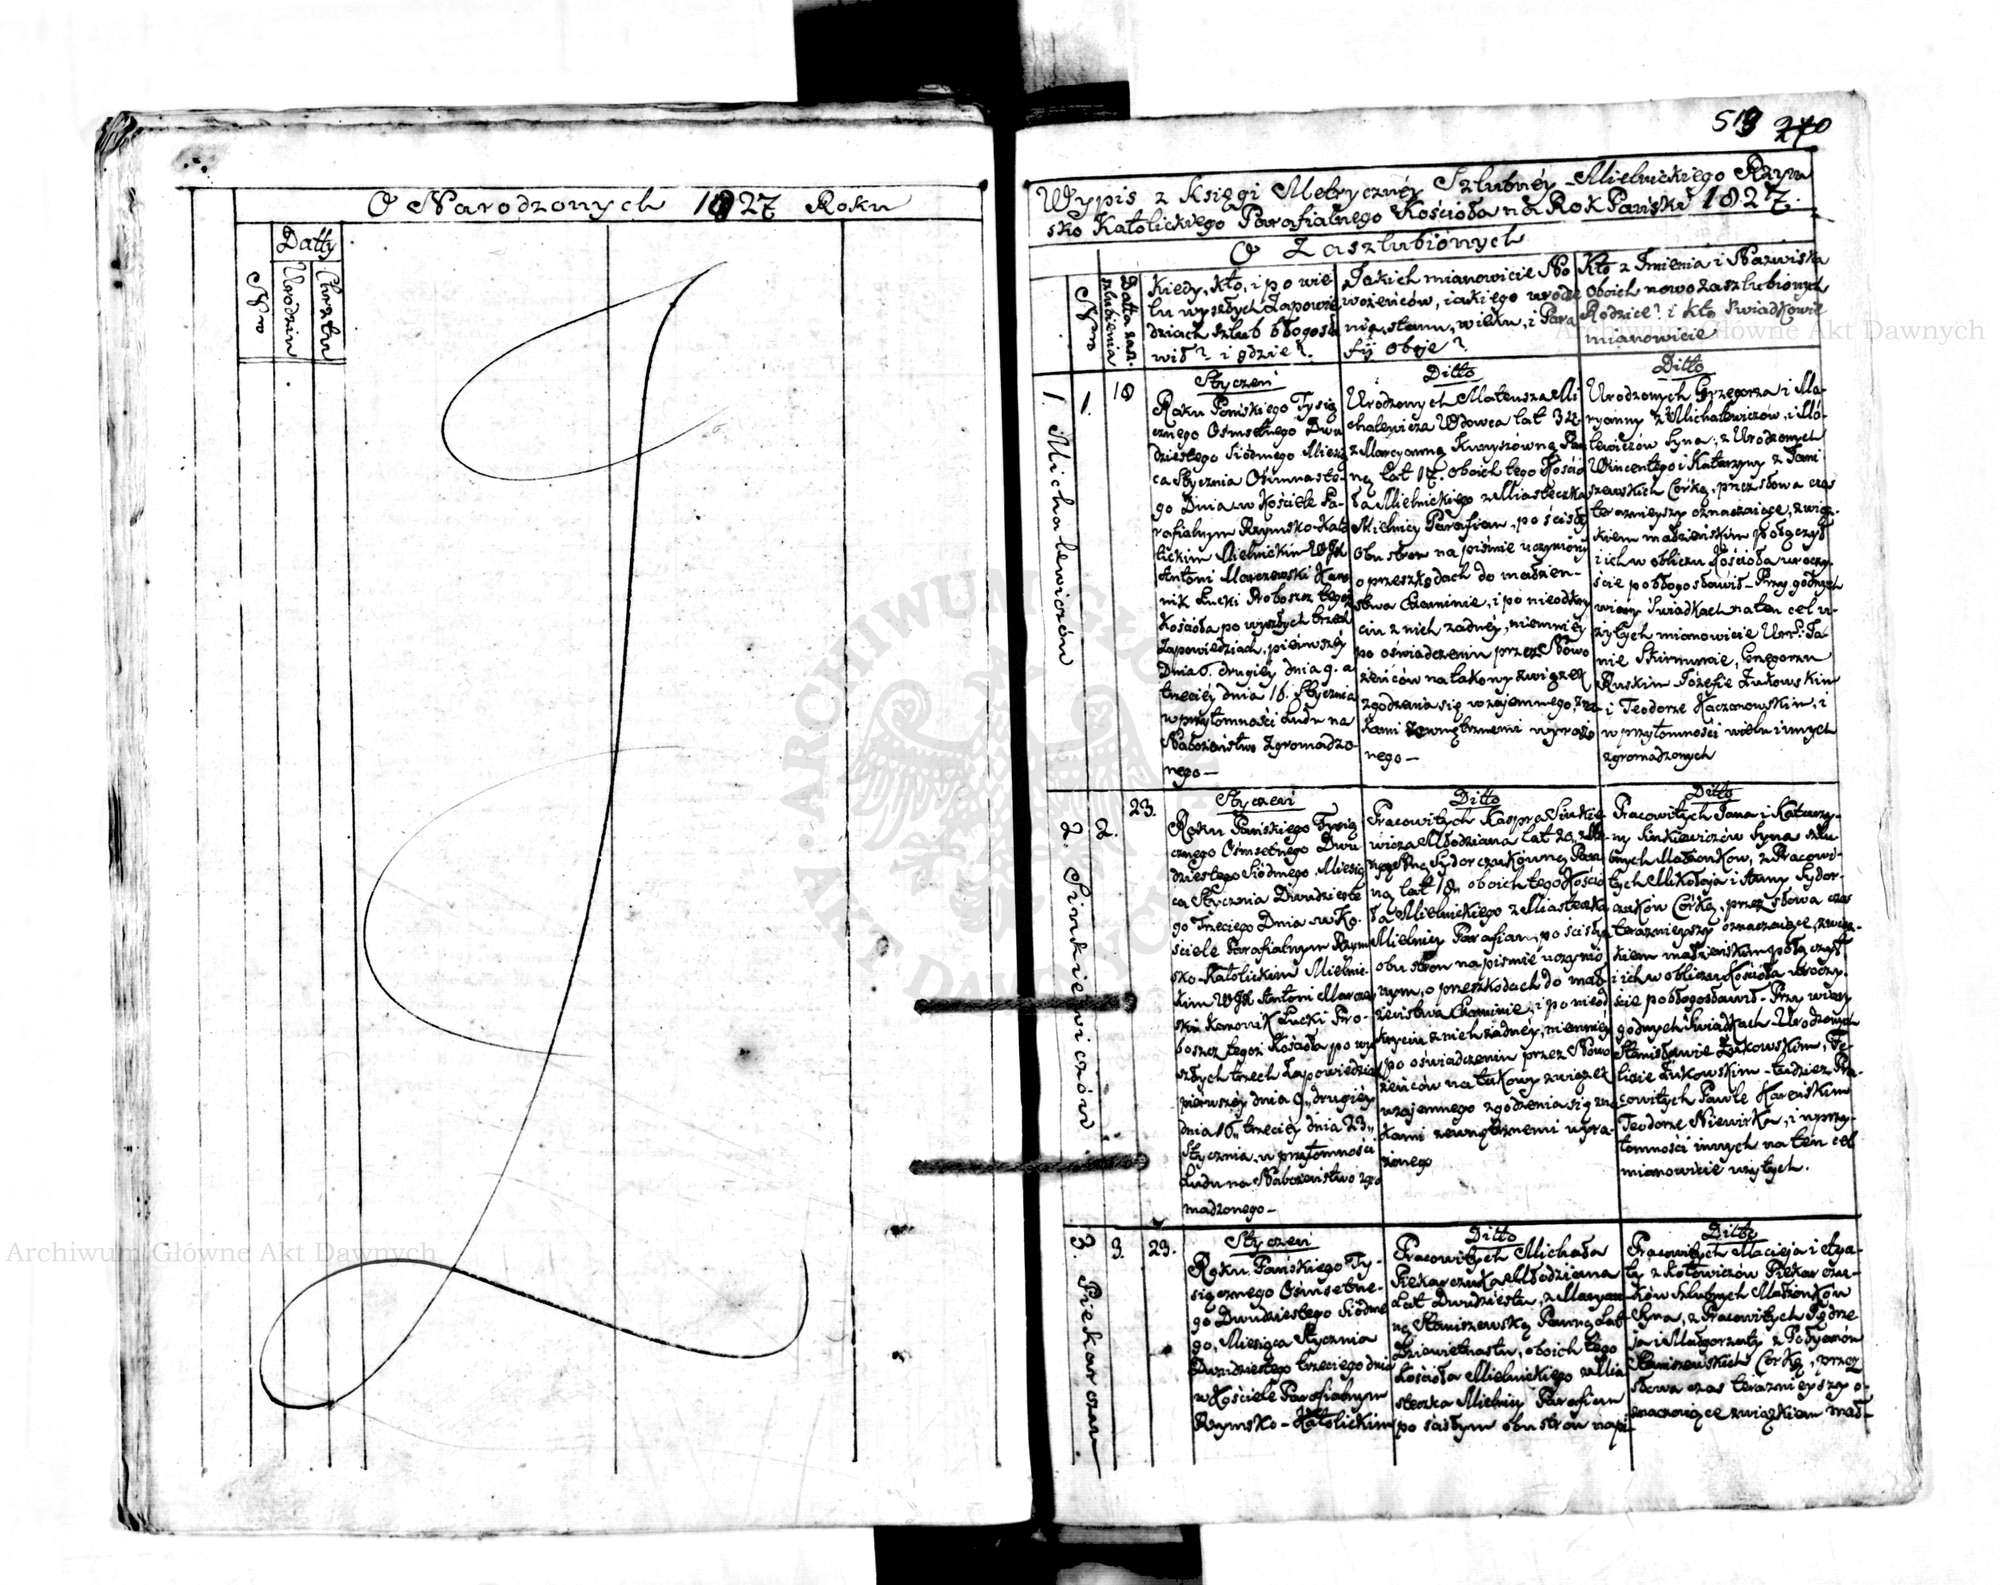 O Narodzonych 1827 Roku
Datty
Nro
Urodzin
Chrztu
519 270
Wypis z Księgi Metrycznéy Szlubnéy Mielnickiego Rzym
sko Katolickiego Parafialnego Kościoła na Rok Pański 1827.
O Zaszlubionych
Nro
Datta zasz
szlubienia
Kiedy, kto, i po wie
lu wyszłych Zapowie
dziach szlub błogosła
wił? i gdzie?
Jakich mianowicie No
wożeńców, iakiego urodze
nia, stanu, wieku, i Para
fij oboje?
Kto z Imienia i Nazwiska
Oboich nowozaszlubionych
Rodzice? i kto Swiadkowie
mianowicie
1. Michalewiczów
1.
18
Styczeń
Roku Pańskiego Tysią
cznego Ośmsetnego Dwu
dziestego Siódmego Miesią
ca Stycznia Ośmnaste
go Dnia w Kościele Pa-
rafialnym Rzymsko-Kato
lickim Mielnickim WJX
Antoni Marczewski Kano
nik Łucki Proboszcz tegoż
Kościoła po wyszłych trzech
Zapowiedziach, piérwszéy
Dnia 6. drugiéy dnia 9. a
trzeciéy dnia 16. Stycznia
w przytomności Ludu na
Nabożeństwo zgromadzo
nego —
Ditto
Urodzonych Mateusza Mi
chalewicza Wdowca lat 32
z Marcyanną Pan
ną lat 17. oboich tego Kościo
ła Mielnickiego z Miasteczka
Mielnicy Parafian, po ścisłym
Obu stron na piśmie uczynionym
o przeszkodach do małżeń-
stwa Examinie, i po nieodkry
ciu z nich żadnéy, niemniéy
po oświadczeniu przez Nowo
żeńców na takowy związek
zgodzenia się wzajemnego, zna
kami zewnętrznemi wyrażo
nego —
Ditto
Urodzonych Grzegorza i Ma-
ryanny z Michalewiczów
Syna; z Urodzonych
Wincentego i Katarzyny z
Córką, przez słowa czas
teraznieyszy oznaczaiące, związ-
kiem małżeńskim połączył
i ich w obliczu Kościoła uroczy-
ście pobłogosławił - Przy godnych
wiary Swiadkach na ten cel u-
żytych mianowicie Urr: Ja-
nie Skirmuncie, Grzegorzu
Ruskim Józefie Żukowskim
i Teodorze Kaczanowskim, i
w przytomności wielu innych
zgromadzonych
2. Sinkiewiczów
2
23.
Styczeń
Roku Pańskiego Tysią
cznego Ośmsetnego Dwu
dziestego Siódmego Miesią
ca Stycznia Dwudzieste
go Trzeciego Dnia w Ko-
ściele Parafialnym Rzym
sko-Katolickim Mielnic-
kim WJX Antoni Marczew
ski Kanonik Łucki Pro-
boszcz tegoż Kościoła po wy
szłych trzech Zapowiedziach
piérwszéy dnia 9" drugiéy
dnia 16" trzeciéy dnia 23"
Stycznia, w przytomności
Ludu na Nabożeństwo zgro
madzonego —
Ditto
Pracowitych Kaspra Sinkie
wicza Młodziana lat 20
Sydorczukówną Pan
ną lat 18" oboich tego Kościo
ła Mielnickiego z Miasteczka
Mielnicy Parafian, po ścisłym
obu stron na piśmie uczynio
nym, o przeszkodach do mał
żeństwa Examinie, i po nieod
kryciu z nich żadnéy, niemniéy
po oświadczeniu przez Nowo
żeńców na takowy związek
wzajemnego zgodzenia się zna
kami zewnętrznemi wyra-
żonego
Ditto
Pracowitych Jana i Katarzy-
ny Sinkiewiczów Syna szlu
bnych Małżonków, z Pracowi-
tych Mikołaja i Anny Sydor-
czuków Córką, przez słowa czas
teraznieyszy oznaczaiące, związ-
kiem małżeńskim połączył
i ich w obliczu Kościoła uroczy-
ście pobłogosławił - Przy wiary
godnych Swiadkach - Urodzonych
Stanisławie Żukowskim, Fe-
lixie Żukowskim - tudzież Pra-
cowitych Pawle Kareńskim
Teodorze Niewirka, i w przy-
tomności innych na ten cel
mianowicie użytych.
3. Piekarczuk
3.
23.
Styczeń
Roku Pańskiego Ty-
siącznego Ośmsetne-
go Dwudziestego Siódme
go, Miesiąca Stycznia
Dwudziestego trzeciego dnia
w Kościele Parafialnym
Rzymsko-Katolickim
Ditto
Pracowitych Michała
Piekarczuka Młodziana
Lat Dwudziestu, z Maryan-
ną Staniszewską Panną Lat
Dziewietnastu, oboich tego
Kościoła Mielnickiego z Mia
steczka Mielnicy Parafian
po ścisłym obu stron na pi-
Ditto
Pracowitych Macieja i Aga-
ty z Kotowiczów Piekarczu-
ków szlubnych Małżonków
Syna, z Pracowitych Jędrze-
ja i Małgorzaty z
Staniszewskich Córką, przez
słowa czas teraznieyszy o-
znaczaiące związkiem mał-
Archiwum Główne Akt Dawnych
Archiwum Główne Akt Dawnych
ARCHIWUM GŁÓWNE AKT DAWNYCH